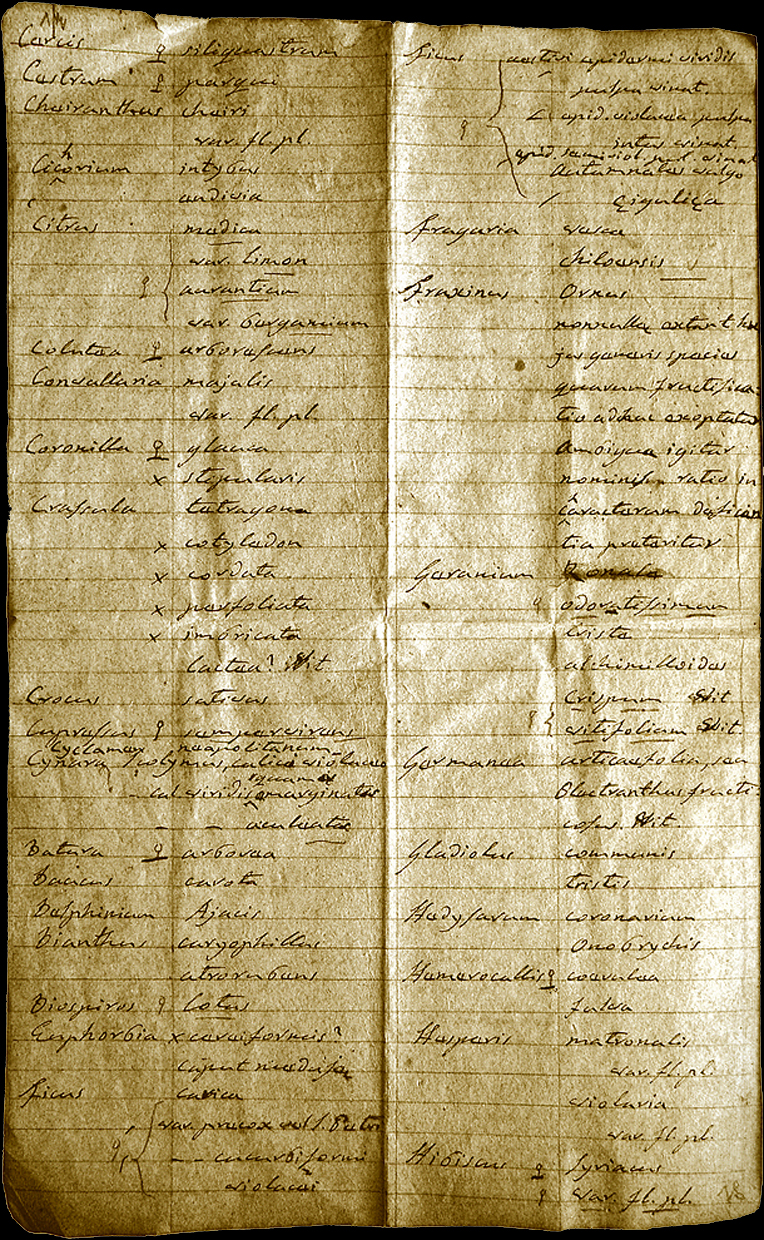 Cercis ♀ siliquastrum
Cestrum ♀ parqui
Cheiranthus cheiri
var. fl. pl.
Cichorium intybus
endivia
Citrus medica
var. limon
♀ aurantium
var. bergamium
Colutea ♀ arborescens
Convallaria majalis
var. fl. pl.
Coronilla ♀ glauca
x stipularis
Crassula tetragona
x cotyledon
x cordata
x perfoliata
x imbricata
lactea? Wit.
Crocus sativus
Cupressus ♀ sempervirens
Cyclamen neapolitanum
Cynara scolymus, calice violaceo
squamis
- cal. viridis emarginatis
- - aculeatis
Datura ♀ arborea
Daucus carota
Delphinium Ajacis
Dianthus caryophillus
atrorubens
Diospiros ♀ Lotus
Euphorbia x cereiformis?
caput medusae
Ficus carica
var. precox
- - cucurbiformi
violacei
Ficus aestivi epidermi viridis
pulpa vinat.
epid. violacea pulpa
♀ intus vinat.
epid. semiviol. pul. vinat
Autumnales vulgo
Fragaria vesca
chiloensis
Fraxinus Ornus
nonnullae extant hu
jus generis species
quarum fructifica:
tio adhuc exoptatur
Ambigua igitur
nominum ratio in
caracterum deficien
tia preteritur.
Geranium
♀ odoratissimum
triste
alchimilloides
crispum Wit
♀ vitifolium Wit.
Germanea urticaefolia, seu
Plectranthus fructi:
cosus. Wit.
Gladiolus communis
tristis
Hedysarum coronarium
Onobrychis
Hemerocallis ♀ coerulea
fulva
Hesperis matronalis
var. fl. pl.
violaria
var. fl. pl.
Hibiscus ♀ Syriacus
♀ var. fl. pl.